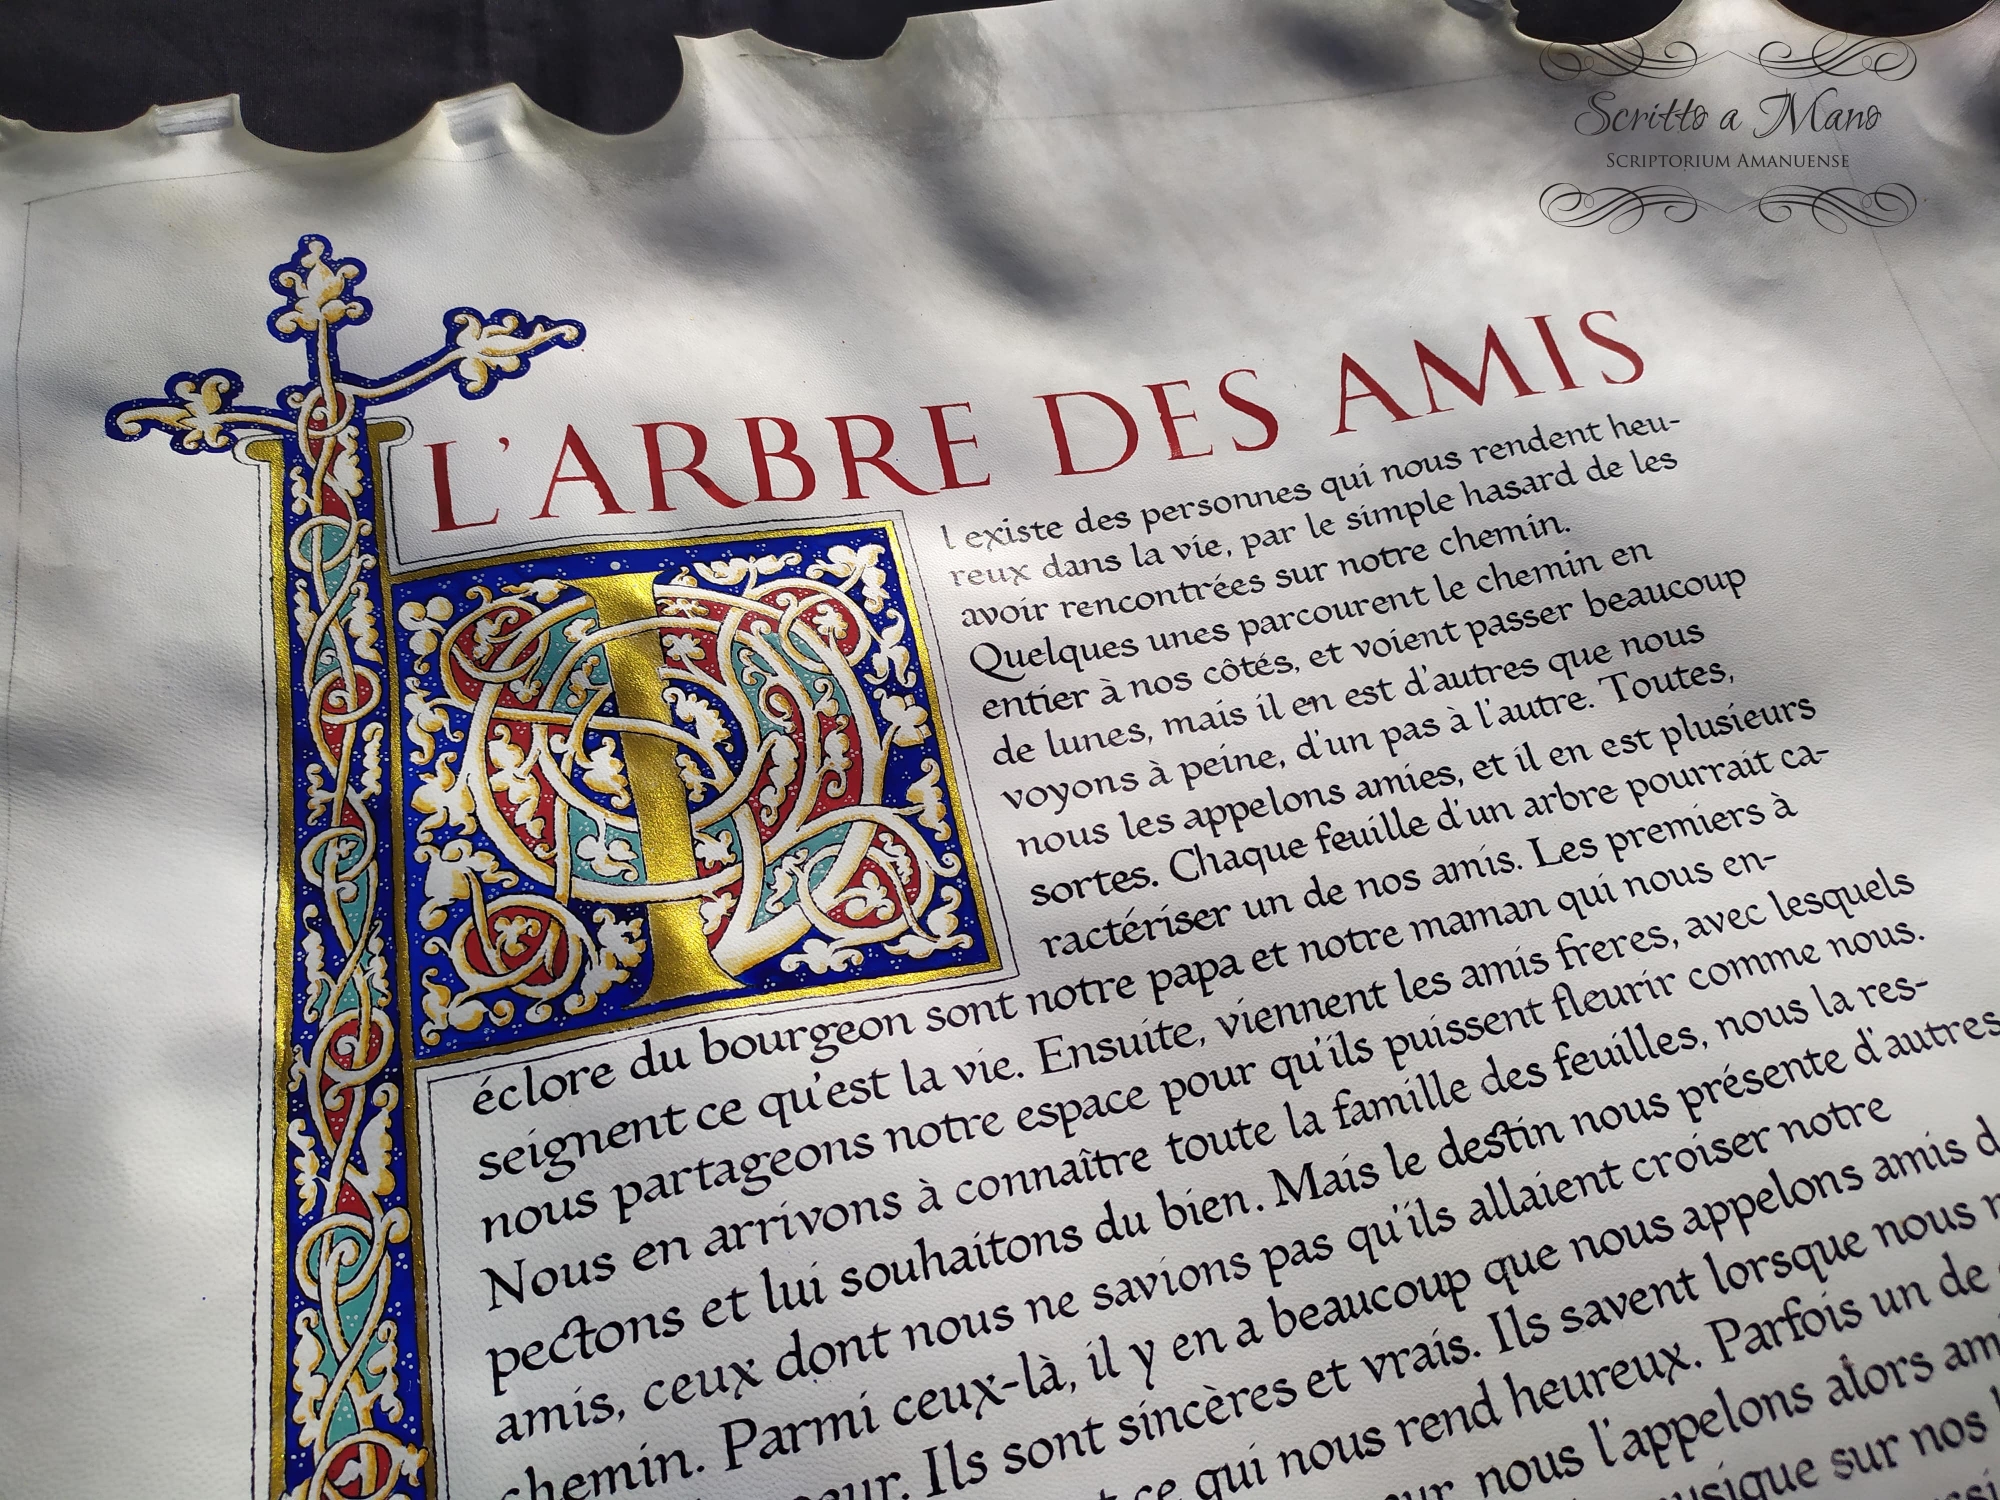 Scritto a Mano
SCRIPTORIUM AMANUENSE
L'ARBRE DES AMIS
Il existe des personnes qui nous rendent heu-
reux dans la vie, par le simple hasard de les
avoir rencontrées sur notre chemin.
Quelques unes parcourent le chemin en
entier à nos côtés, et voient passer beaucoup
de lunes, mais il en est d'autres que nous
voyons à peine, d'un pas à l'autre. Toutes,
nous les appelons amies, et il en est plusieurs
sortes. Chaque feuille d'un arbre pourrait ca-
ractériser un de nos amis. Les premiers à
éclore du bourgeon sont notre papa et notre maman qui nous en-
seignent ce qu'est la vie. Ensuite, viennent les amis freres, avec lesquels
nous partageons notre espace pour qu'ils puissent fleurir comme nous.
Nous en arrivons à connaître toute la famille des feuilles, nous la res-
pectons et lui souhaitons du bien. Mais le destin nous présente d'autres
amis, ceux dont nous ne savions pas qu'ils allaient croiser notre
chemin. Parmi ceux-là, il y en a beaucoup que nous appelons amis
Ils sont sincères et vrais. Ils savent lorsque nous
ce qui nous rend heureux. Parfois un de
nous l'appelons alors
sur nos